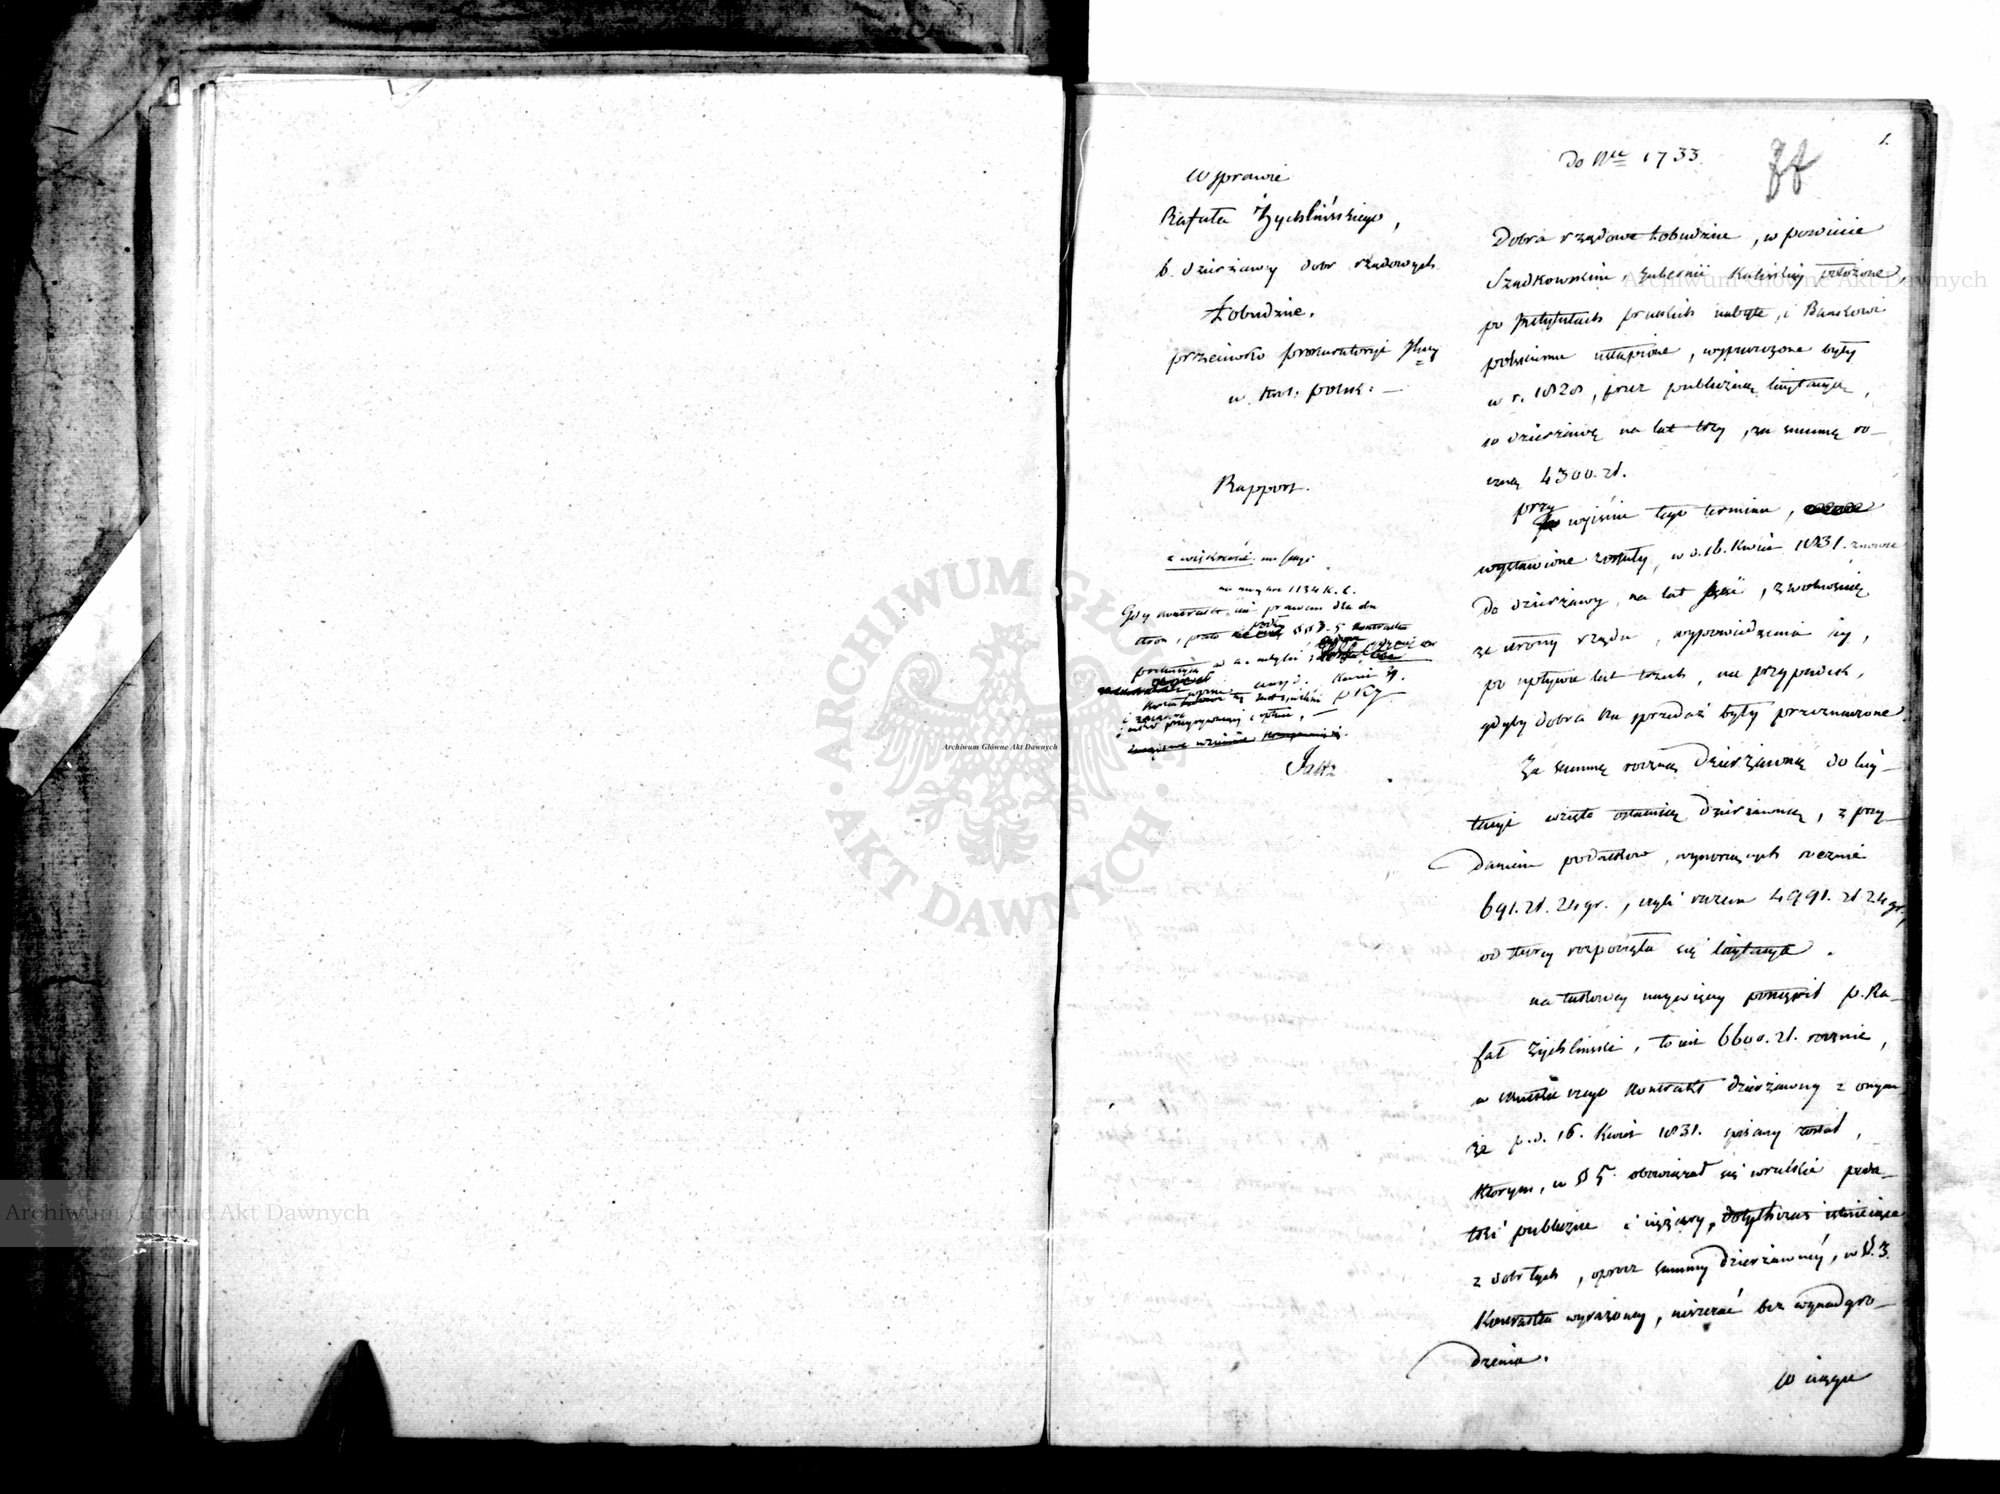 1.
Do Nru 1733.
W sprawie
Rafała Żychlińskiego,
b. dzierżawcy dobr rządowych
Łobudzice.
przeciwko prokuratoryi
w Król. polsk: —
Rapport.
na 1134 K. C.
Gdy kontrakt jest prawem dla
stron, przeto §§ 3. 5 kontraktu
Dobra rządowe Łobudzice, w powiecie
Szadkowskim, Gubernii Kaliskiej położone,
po Instytutach pruskich nabyte, i Bankowi
polskiemu ustąpione, wypuszczone były
w r. 1828, przez publiczną licytacyą,
w dzierżawę na lat trzy, za summę ro-
czną 4300. zł.
przy wyjściu tego terminu,
wystawione zostały, w d. 16. Kwie 1831. znowu
do dzierżawy, na lat sześć, z wolnością
ze strony rządu, wypowiedzenia jej,
po upływie lat trzech, na przypadek,
gdyby dobra na sprzedaż były przeznaczone.
Za summę roczną dzierżawną do licy-
tacyi wzięto ostatnią dzierżawną, z przy-
daniem podatków, wynoszących rocznie
691. zł. 24 gr., czyli razem 4991. zł 24 gr,
od której rozpoczęła się licytacya.
na takowej najwięcej postąpił p. Ra-
fał Żychliński, to jest 6600. zł. rocznie,
w skutku czego kontrakt dzierżawny z onym-
że p. d. 16. Kwiet 1831. spisany został,
którym, w § 5. obowiązał się wszelkie poda-
tki publiczne i ciężary, dotychczas istniejące
z dobr tych, oprocz summy dzierżawnej, w §. 3.
Kontraktu wyrażonej, uiszczać bez wynadgro-
dzenia.
W ciągu
Archiwum Główne Akt Dawnych
Archiwum Główne Akt Dawnych
Archiwum Główne Akt Dawnych
ARCHIWUM GŁÓWNE
AKT DAWNYCH